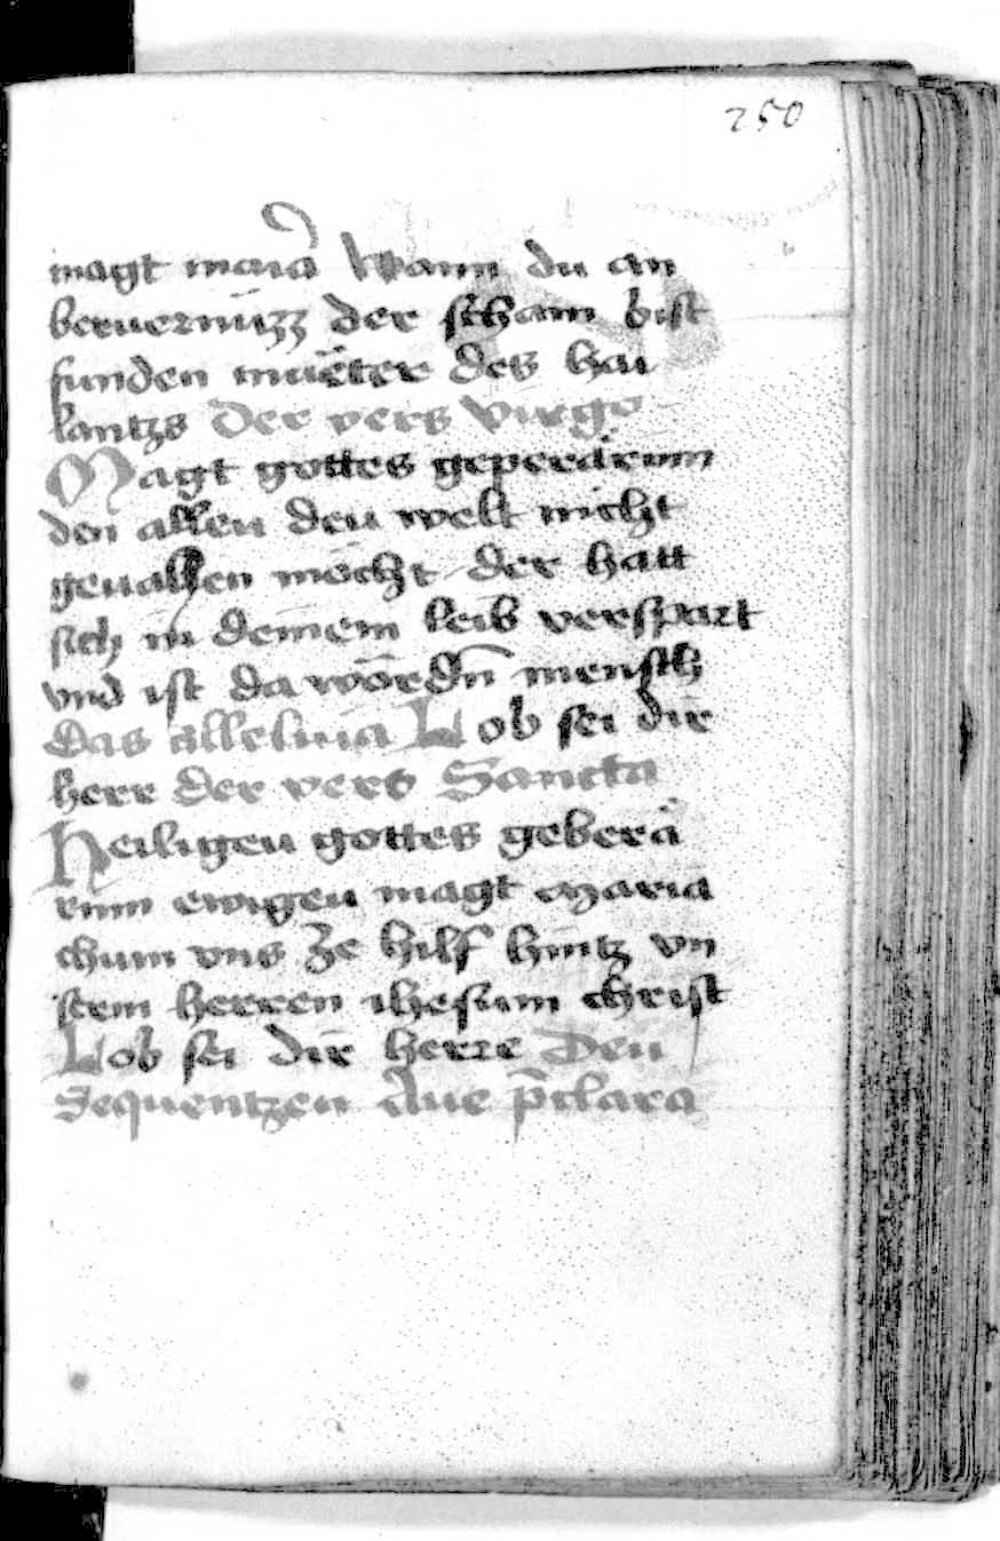 250
magt maria Wann du an
beruernüzz der scham bist
funden mueter des hai
lantzs Der vers Virgo
Magt gottes geperärinn
den allen den welt nicht
geuallen mocht der hatt
sich in deinem leib verspart
vnd ist da wordn̄ mensch
Das alleluia Lob sei dir
herr Der vers Sancta
Heiligeu gottes geberä
rinn ewigeu magt maria
chum vns ze hilf hintz vn
serm herren ihesum christ
Lob sei dir herre Den
Sequentzen Aue p̄clara